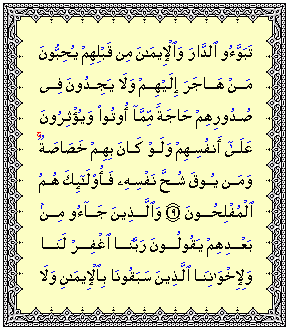 تَبَوَّءُو ٱلدَّارَ وَٱلْإِيمَـٰنَ مِن قَبْلِهِمْ يُحِبُّونَ
مَنْ هَاجَرَ إِلَيْهِمْ وَلَا يَجِدُونَ فِى
صُدُورِهِمْ حَاجَةً مِّمَّآ أُوتُوا۟ وَيُؤْثِرُونَ
عَلَىٰٓ أَنفُسِهِمْ وَلَوْ كَانَ بِهِمْ خَصَاصَةٌ ۚ
وَمَن يُوقَ شُحَّ نَفْسِهِۦ فَأُو۟لَـٰٓئِكَ هُمُ
ٱلْمُفْلِحُونَ ۝٩ وَٱلَّذِينَ جَآءُو مِنۢ
بَعْدِهِمْ يَقُولُونَ رَبَّنَا ٱغْفِرْ لَنَا
وَلِإِخْوَٰنِنَا ٱلَّذِينَ سَبَقُونَا بِٱلْإِيمَـٰنِ وَلَا